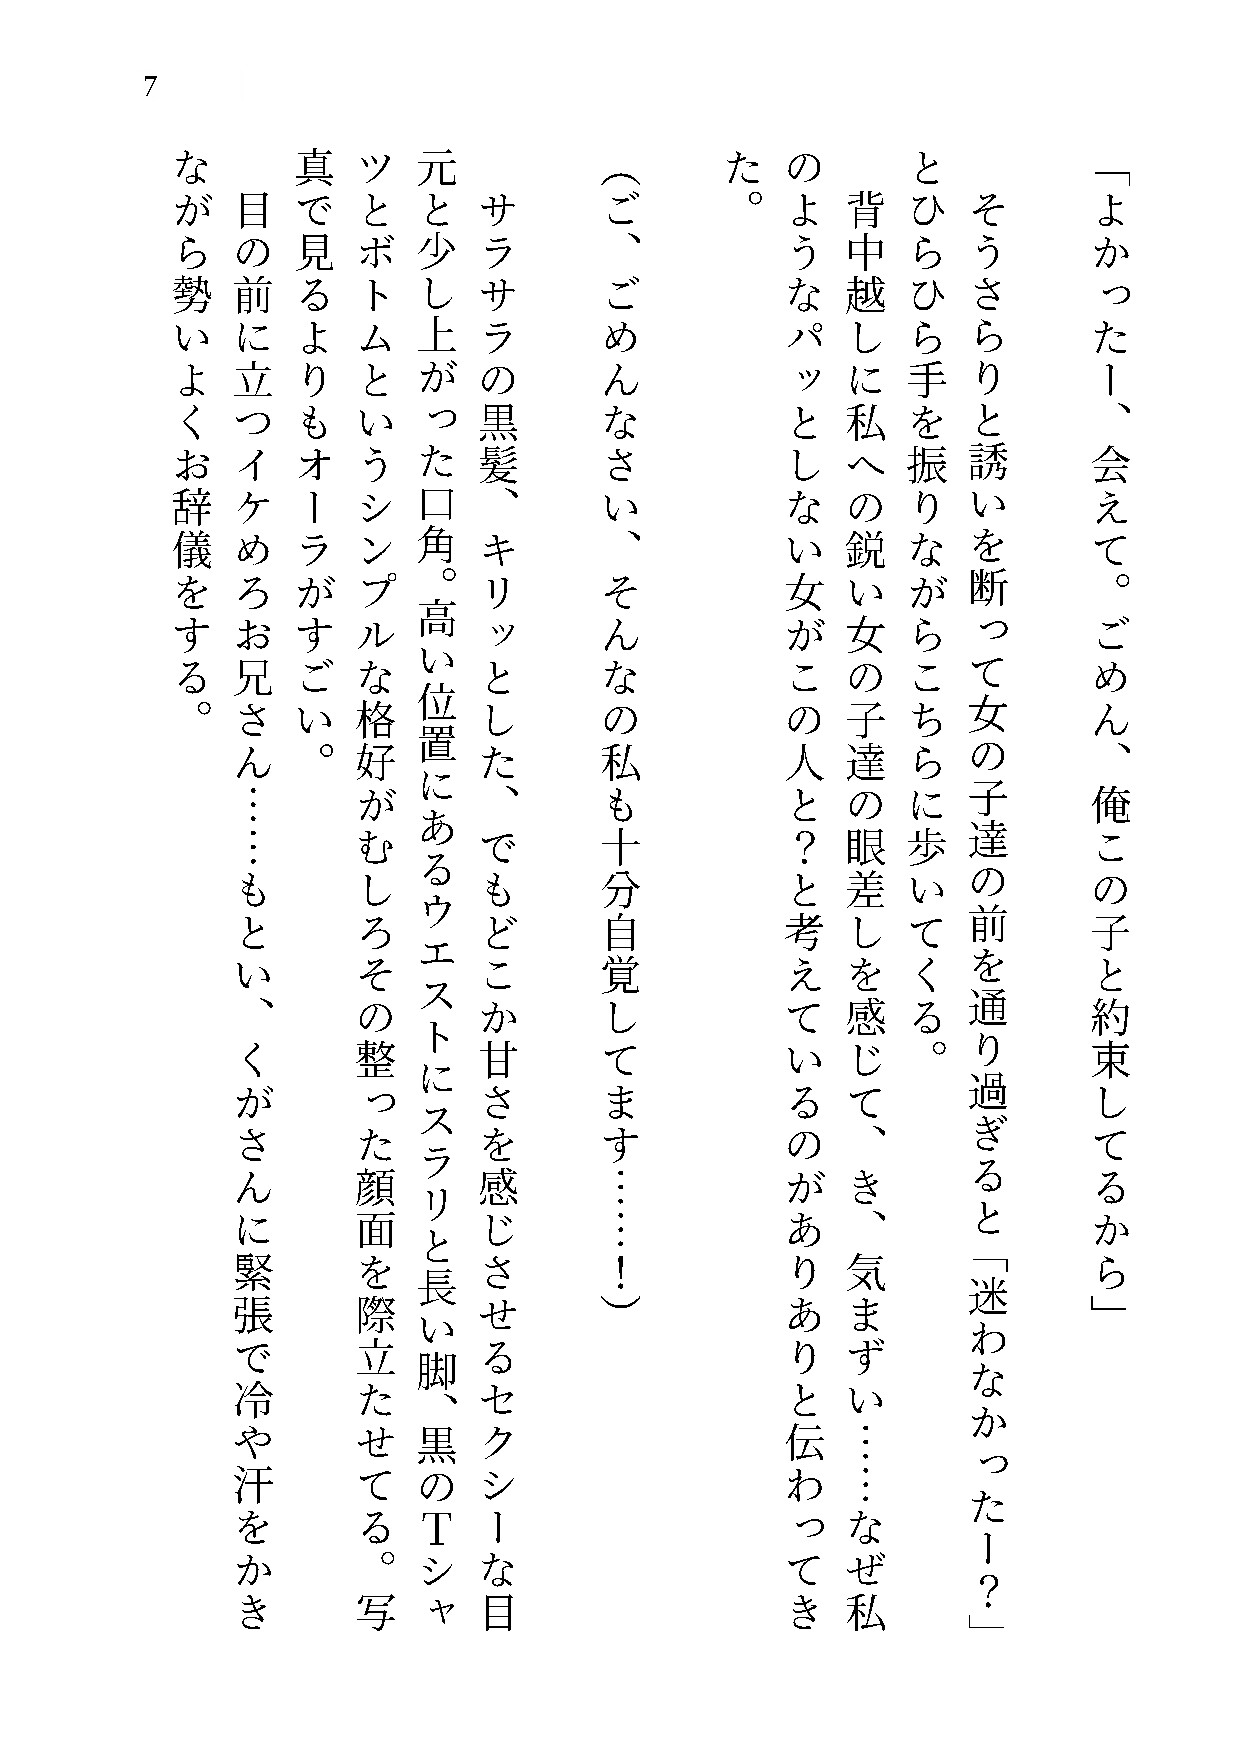 7
「よかったー、会えて。ごめん、俺この子と約束してるから」
そうさらりと誘いを断って女の子達の前を通り過ぎると「迷わなかったー？」
とひらひら手を振りながらこちらに歩いてくる。
背中越しに私への鋭い女の子達の眼差しを感じて、き、気まずい……なぜ私
のようなパッとしない女がこの人と？と考えているのがありありと伝わってき
た。
（ご、ごめんなさい、そんなの私も十分自覚してます……！）
サラサラの黒髪、キリッとした、でもどこか甘さを感じさせるセクシーな目
元と少し上がった口角。高い位置にあるウエストにスラリと長い脚、黒のＴシャ
ツとボトムというシンプルな格好がむしろその整った顔面を際立たせてる。写
真で見るよりもオーラがすごい。
目の前に立つイケめろお兄さん……もとい、くがさんに緊張で冷や汗をかき
ながら勢いよくお辞儀をする。